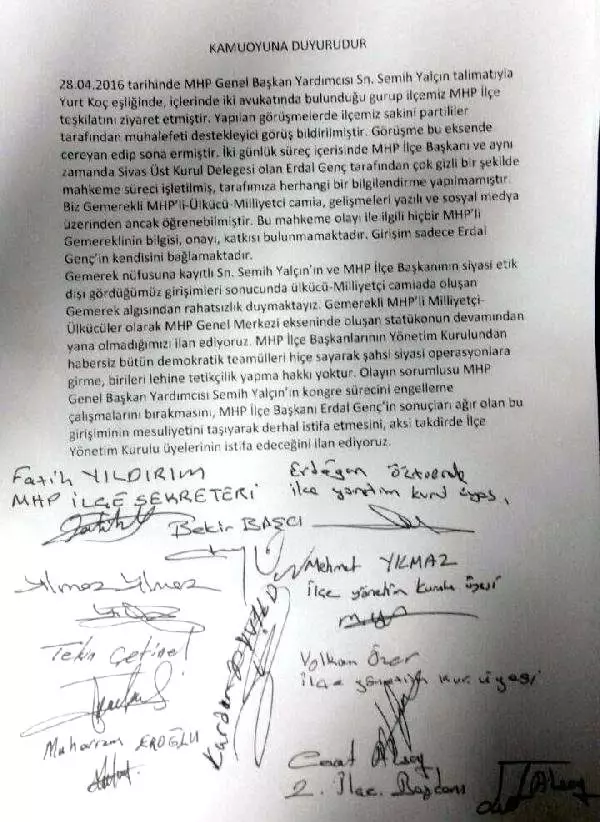 KAMUOYUNA DUYURUDUR
28.04.2016 tarihinde MHP Genel Başkan Yardımcısı Sn. Semih Yalçın talimatıyla
Yurt Koç eşliğinde, içlerinde iki avukatında bulunduğu gurup ilçemiz MHP İlçe
teşkilatını ziyaret etmiştir. Yapılan görüşmelerde ilçemiz sakini partililer
tarafından muhalefeti destekleyici görüş bildirilmiştir. Görüşme bu eksende
cereyan edip sona ermiştir. İki günlük süreç içerisinde MHP İlçe Başkanı ve aynı
zamanda Sivas Üst Kurul Delegesi olan Erdal Genç tarafından çok gizli bir şekilde
mahkeme süreci işletilmiş, tarafımıza herhangi bir bilgilendirme yapılmamıştır.
Biz Gemerekli MHP'li-Ülkücü-Milliyetçi camia, gelişmeleri yazılı ve sosyal medya
üzerinden ancak öğrenebilmiştir. Bu mahkeme olayı ile ilgili hiçbir MHP'li
Gemereklinin bilgisi, onayı, katkısı bulunmamaktadır. Girişim sadece Erdal
Genç'in kendisini bağlamaktadır.
Gemerek nüfusuna kayıtlı Sn. Semih Yalçın'ın ve MHP İlçe Başkanının siyasi etik
dışı gördüğümüz girişimleri sonucunda ülkücü-Milliyetçi camiada oluşan
Gemerek algısından rahatsızlık duymaktayız. Gemerekli MHP'li Milliyetçi-
Ülkücüler olarak MHP Genel Merkezi ekseninde oluşan statükonun devamından
yana olmadığımızı ilan ediyoruz. MHP İlçe Başkanlarının Yönetim Kurulundan
habersiz bütün demokratik teamülleri hiçe sayarak şahsi siyasi operasyonlara
girme, birileri lehine tetikçilik yapma hakkı yoktur. Olayın sorumlusu MHP
Genel Başkan Yardımcısı Semih Yalçın'ın kongre sürecini engelleme
çalışmalarını bırakmasını, MHP İlçe Başkanı Erdal Genç'in sonuçları ağır olan bu
girişiminin mesuliyetini taşıyarak derhal istifa etmesini, aksi takdirde İlçe
Yönetim Kurulu üyelerinin istifa edeceğini ilan ediyoruz.
Fatih YILDIRIM
MHP İLÇE SEKRETERİ
Erdoğan Öztürk
ilçe yönetim kurul üyesi
Bekir BAŞCI
Yılmaz Yılmaz
Mehmet YILMAZ
İlçe yönetim kurulu üyesi
Tekin Çetinel
Volkan Özer
ilçe yönetim kur. üyesi
Muharrem EROĞLU
2. İlçe. Başkanı